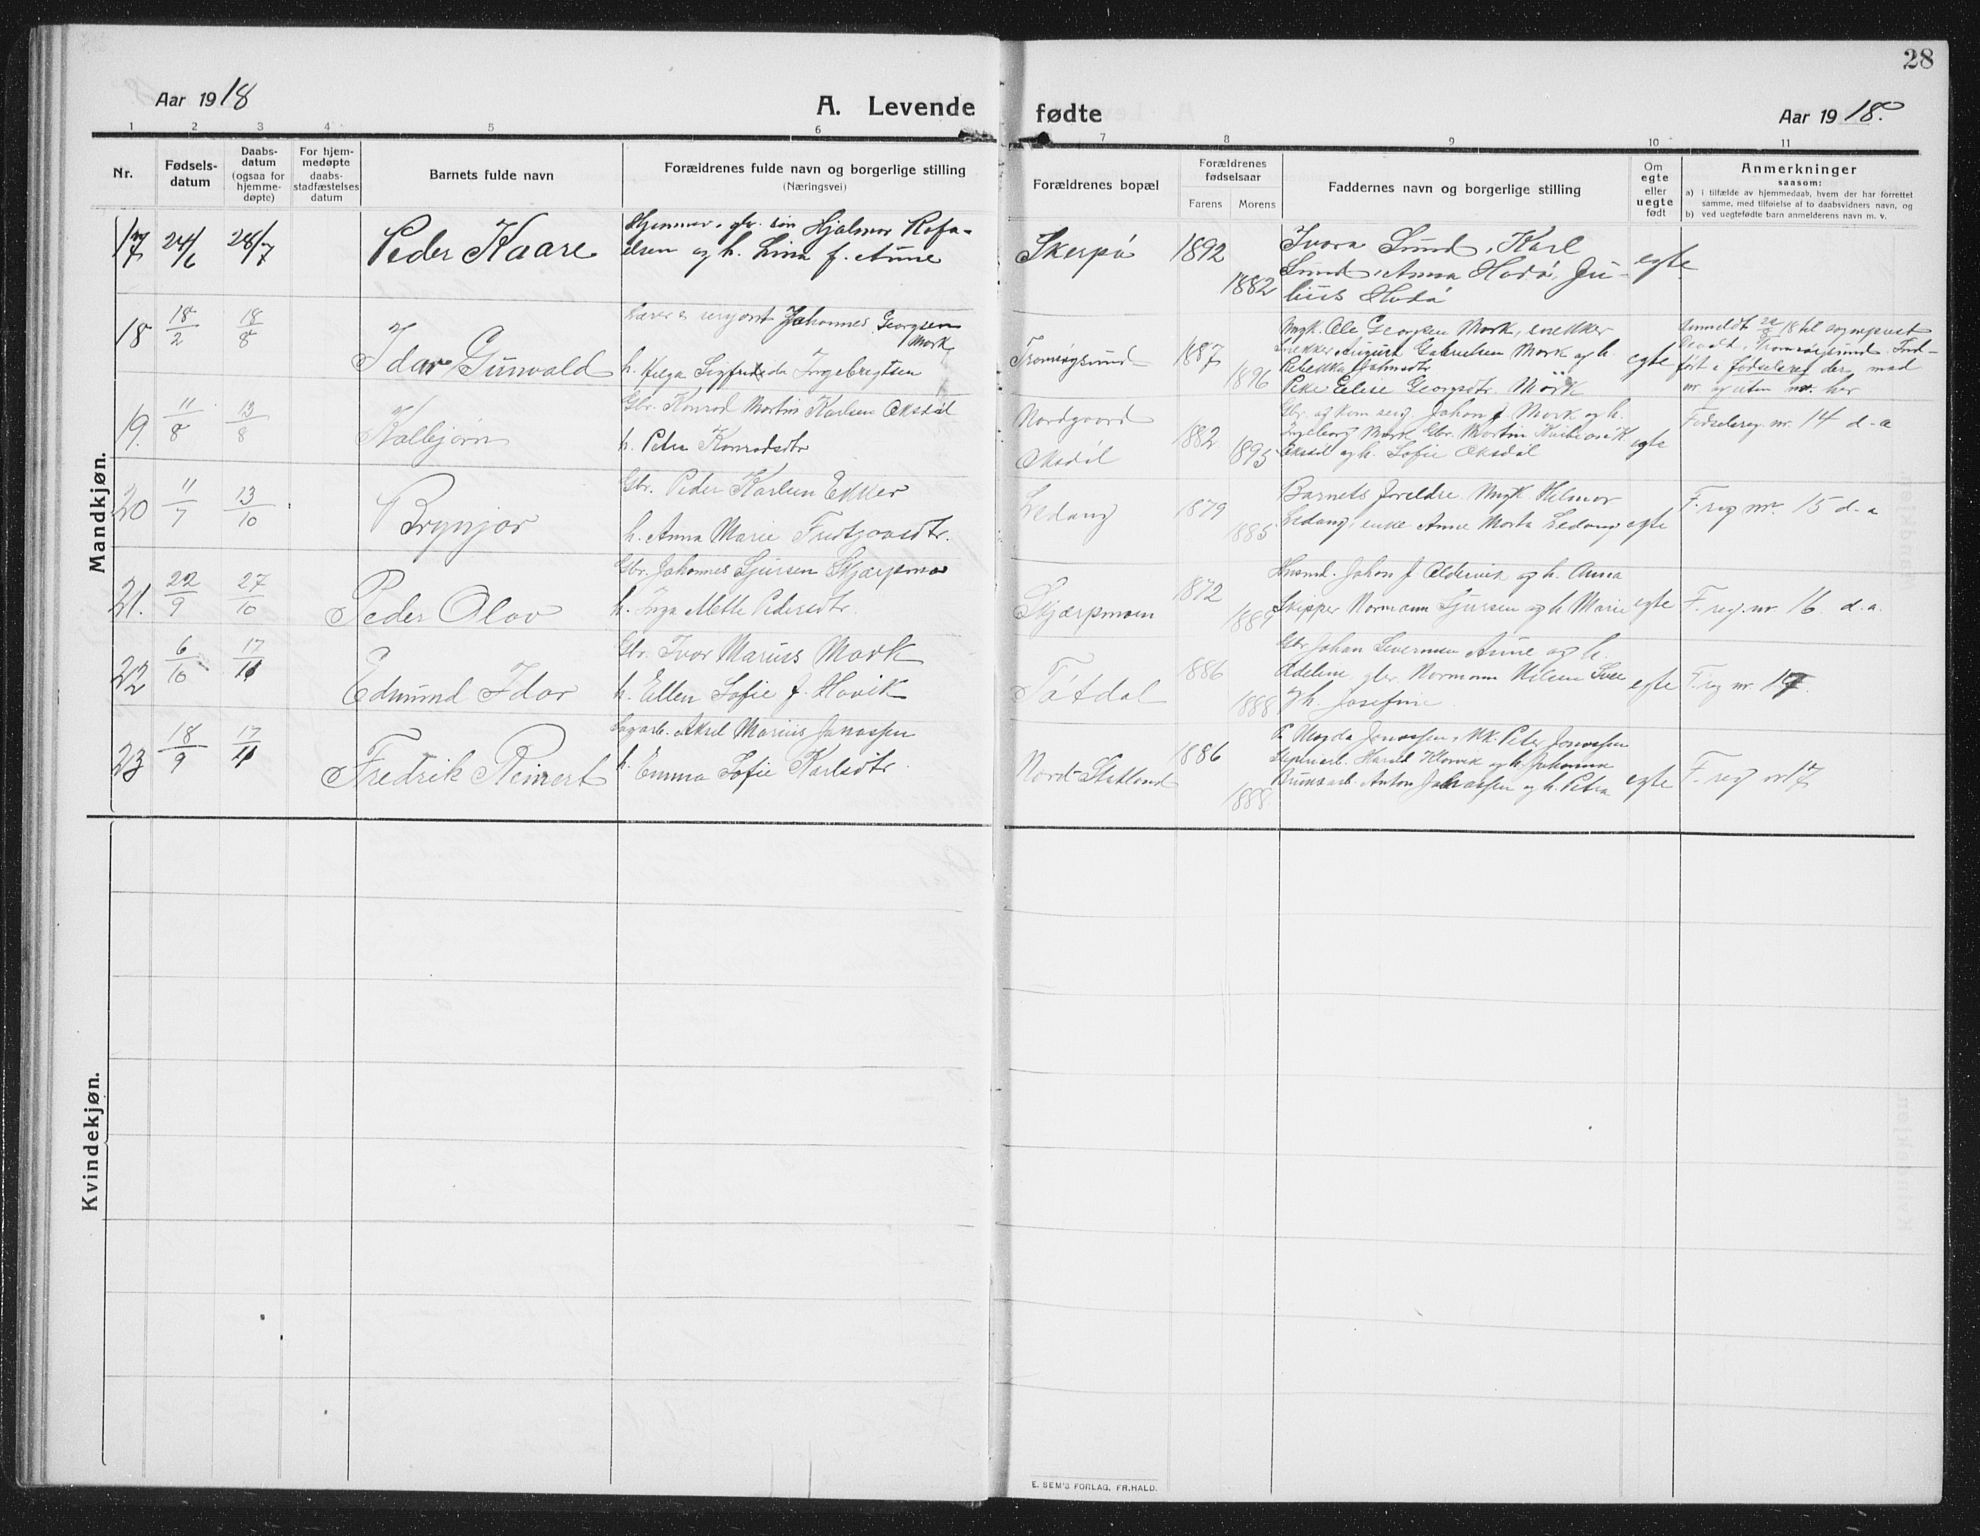 28
Aar 1918
A. Levende fødte
Aar 1918.
1 2 3 4 5 6 7 8 9 10 11
Nr.
Fødsels-
datum
Daabs-
datum
(ogsaa for
hjemme-
døpte)
For hjem-
medøpte
daabs-
stadfæstelses
datum
Barnets fulde navn
Forældrenes fulde navn og borgerlige stilling
(Næringsvei)
Forældrenes bopæl
Forældrenes
fødselsaar
Farens Morens
Faddernes navn og borgerlige stilling
Om
egte
eller
uegte
født
Anmerkninger
saasom:
a) i tilfælde av hjemmedaab, hvem der har forrettet
samme, med tilføielse av to daabsvidners navn, og
b) ved uegtefødte barn anmelderens navn m. v.
Mandkjøn.
17 24/6 28/7 Peder Kaare
Hjalmar Rafa-
elsen og h. Lina f. Aune
Skerpø 1892 1882
Ivara Sund, Karl
Sund, Anna Hodø, Ju-
lius Hodø
egte
18 18/2 18/8 Idar Gunvald
Johannes Georgsen
Mork
h. Helga Sigfrida Ingebrigtsen
Tromsøysund 1887 1896
Ungk. Ole Georgsen Mork, snekker
Snekker August Gabrielsen Mork og h.
Rebekka Johnsdtr
Pike Eelie Georgsdtr. Mork
egte
Anmeldt 22/8 18 til sogneprest
Tromsøysund. Ind-
ført i fødselsreg der med
nr og uten nr. her
19. 11/8 13/8 Kolbjørn
Gbr. Konrad Martin Karlsen Oksdøl
h. Petra Konradsdtr
Nordgaard
Oksdøl
1882 1895
Gbr. og kom. serg. Johan J. Mork og h.
Ingeborg Mork, Gbr. Martin
Oksdøl og h. Sofie Oksdøl
egte
Fødselsreg. nr. 14 d. a
20 11/7 13/10 Brynjar
Gbr. Peder Karlsen Ekker
h. Anna Marie
Ledang 1879 1885
Barnets foreldre. Ungk. Helmer
Ledang, enke Anne Marta Ledang
egte
F. reg nr. 15 d. a
21. 22/9 27/10 Peder Olav
Gbr. Johannes Sjursen Skjærpmo
h. Inga Mette Pedersdtr.
Skjærpmoen 1872 1889
Husmd. Johan J Aldervik og h. Anna
Skipper Normann Sjursen og h Marie
egte
F. reg. nr. 16. d. a.
22 6/10 17/11 Edmund Idar
Gbr. Ivar Marius Mork
h. Ellen Sofie f. Hovik
Tøtdal 1886 1888
Gbr Johan Severinsen Aune og h.
Adeline, gbr. Normann Nilsen Sve
og h. Josefine
egte
F. reg nr 17.
23 18/9 17/11 Fredrik Reinert
Sagarb. Aksel Marius Jonassen
h. Emma Sofie Karlsdtr.
Nord-Statland 1886 1888
P. Magda Jonassen, Uk. Peter Jonassen
Harald Klovik og h. Johanna
Bruksarb. Anton Jonassen og h. Petra
egte
F. reg nr 17
Kvindekjøn.
E. SEM'S FORLAG, FR.HALD.